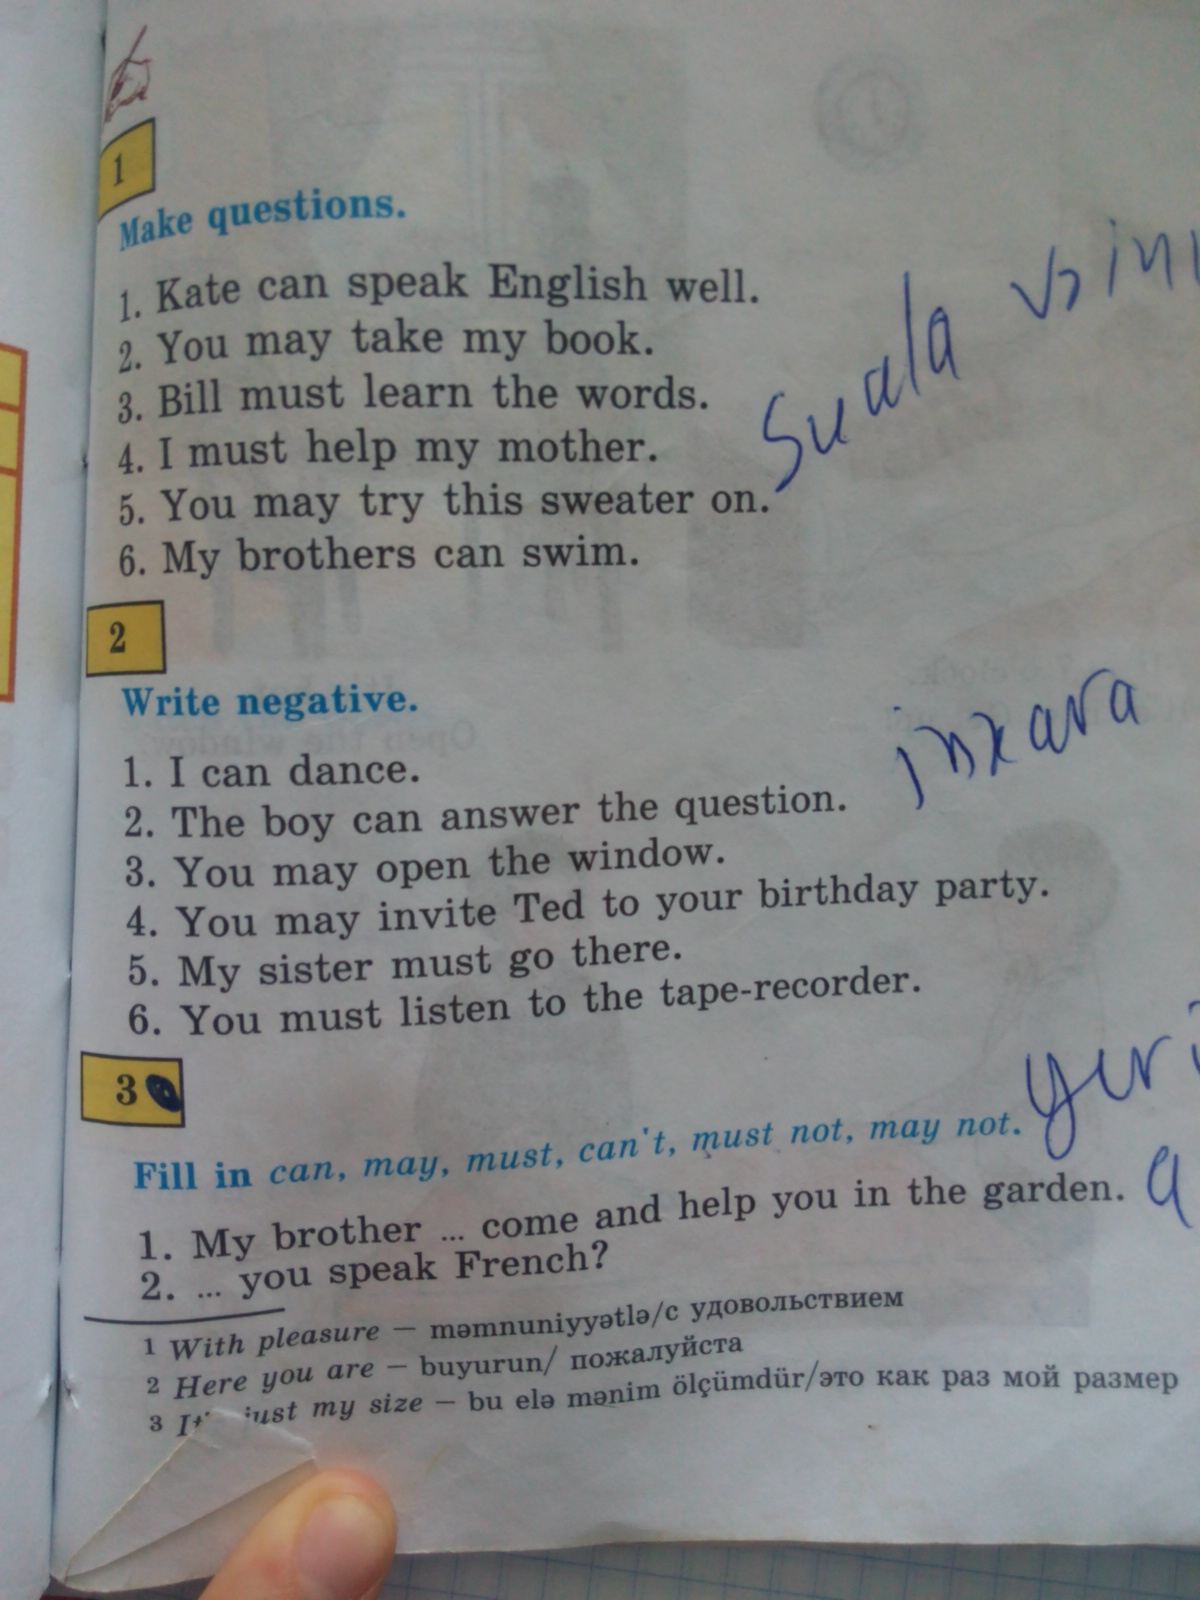 1
Make questions.
1. Kate can speak English well.
2. You may take my book.
3. Bill must learn the words.
4. I must help my mother.
5. You may try this sweater on.
6. My brothers can swim.
Suala
2
Write negative.
1. I can dance.
2. The boy can answer the question.
3. You may open the window.
4. You may invite Ted to your birthday party.
5. My sister must go there.
6. You must listen to the tape-recorder.
inkara
3
Fill in can, may, must, can't, must not, may not.
1. My brother ... come and help you in the garden.
2. ... you speak French?
1 With pleasure – məmnuniyyətlə/с удовольствием
2 Here you are – buyurun/ пожалуйста
3 just my size – bu elə mənim ölçümdür/это как раз мой размер